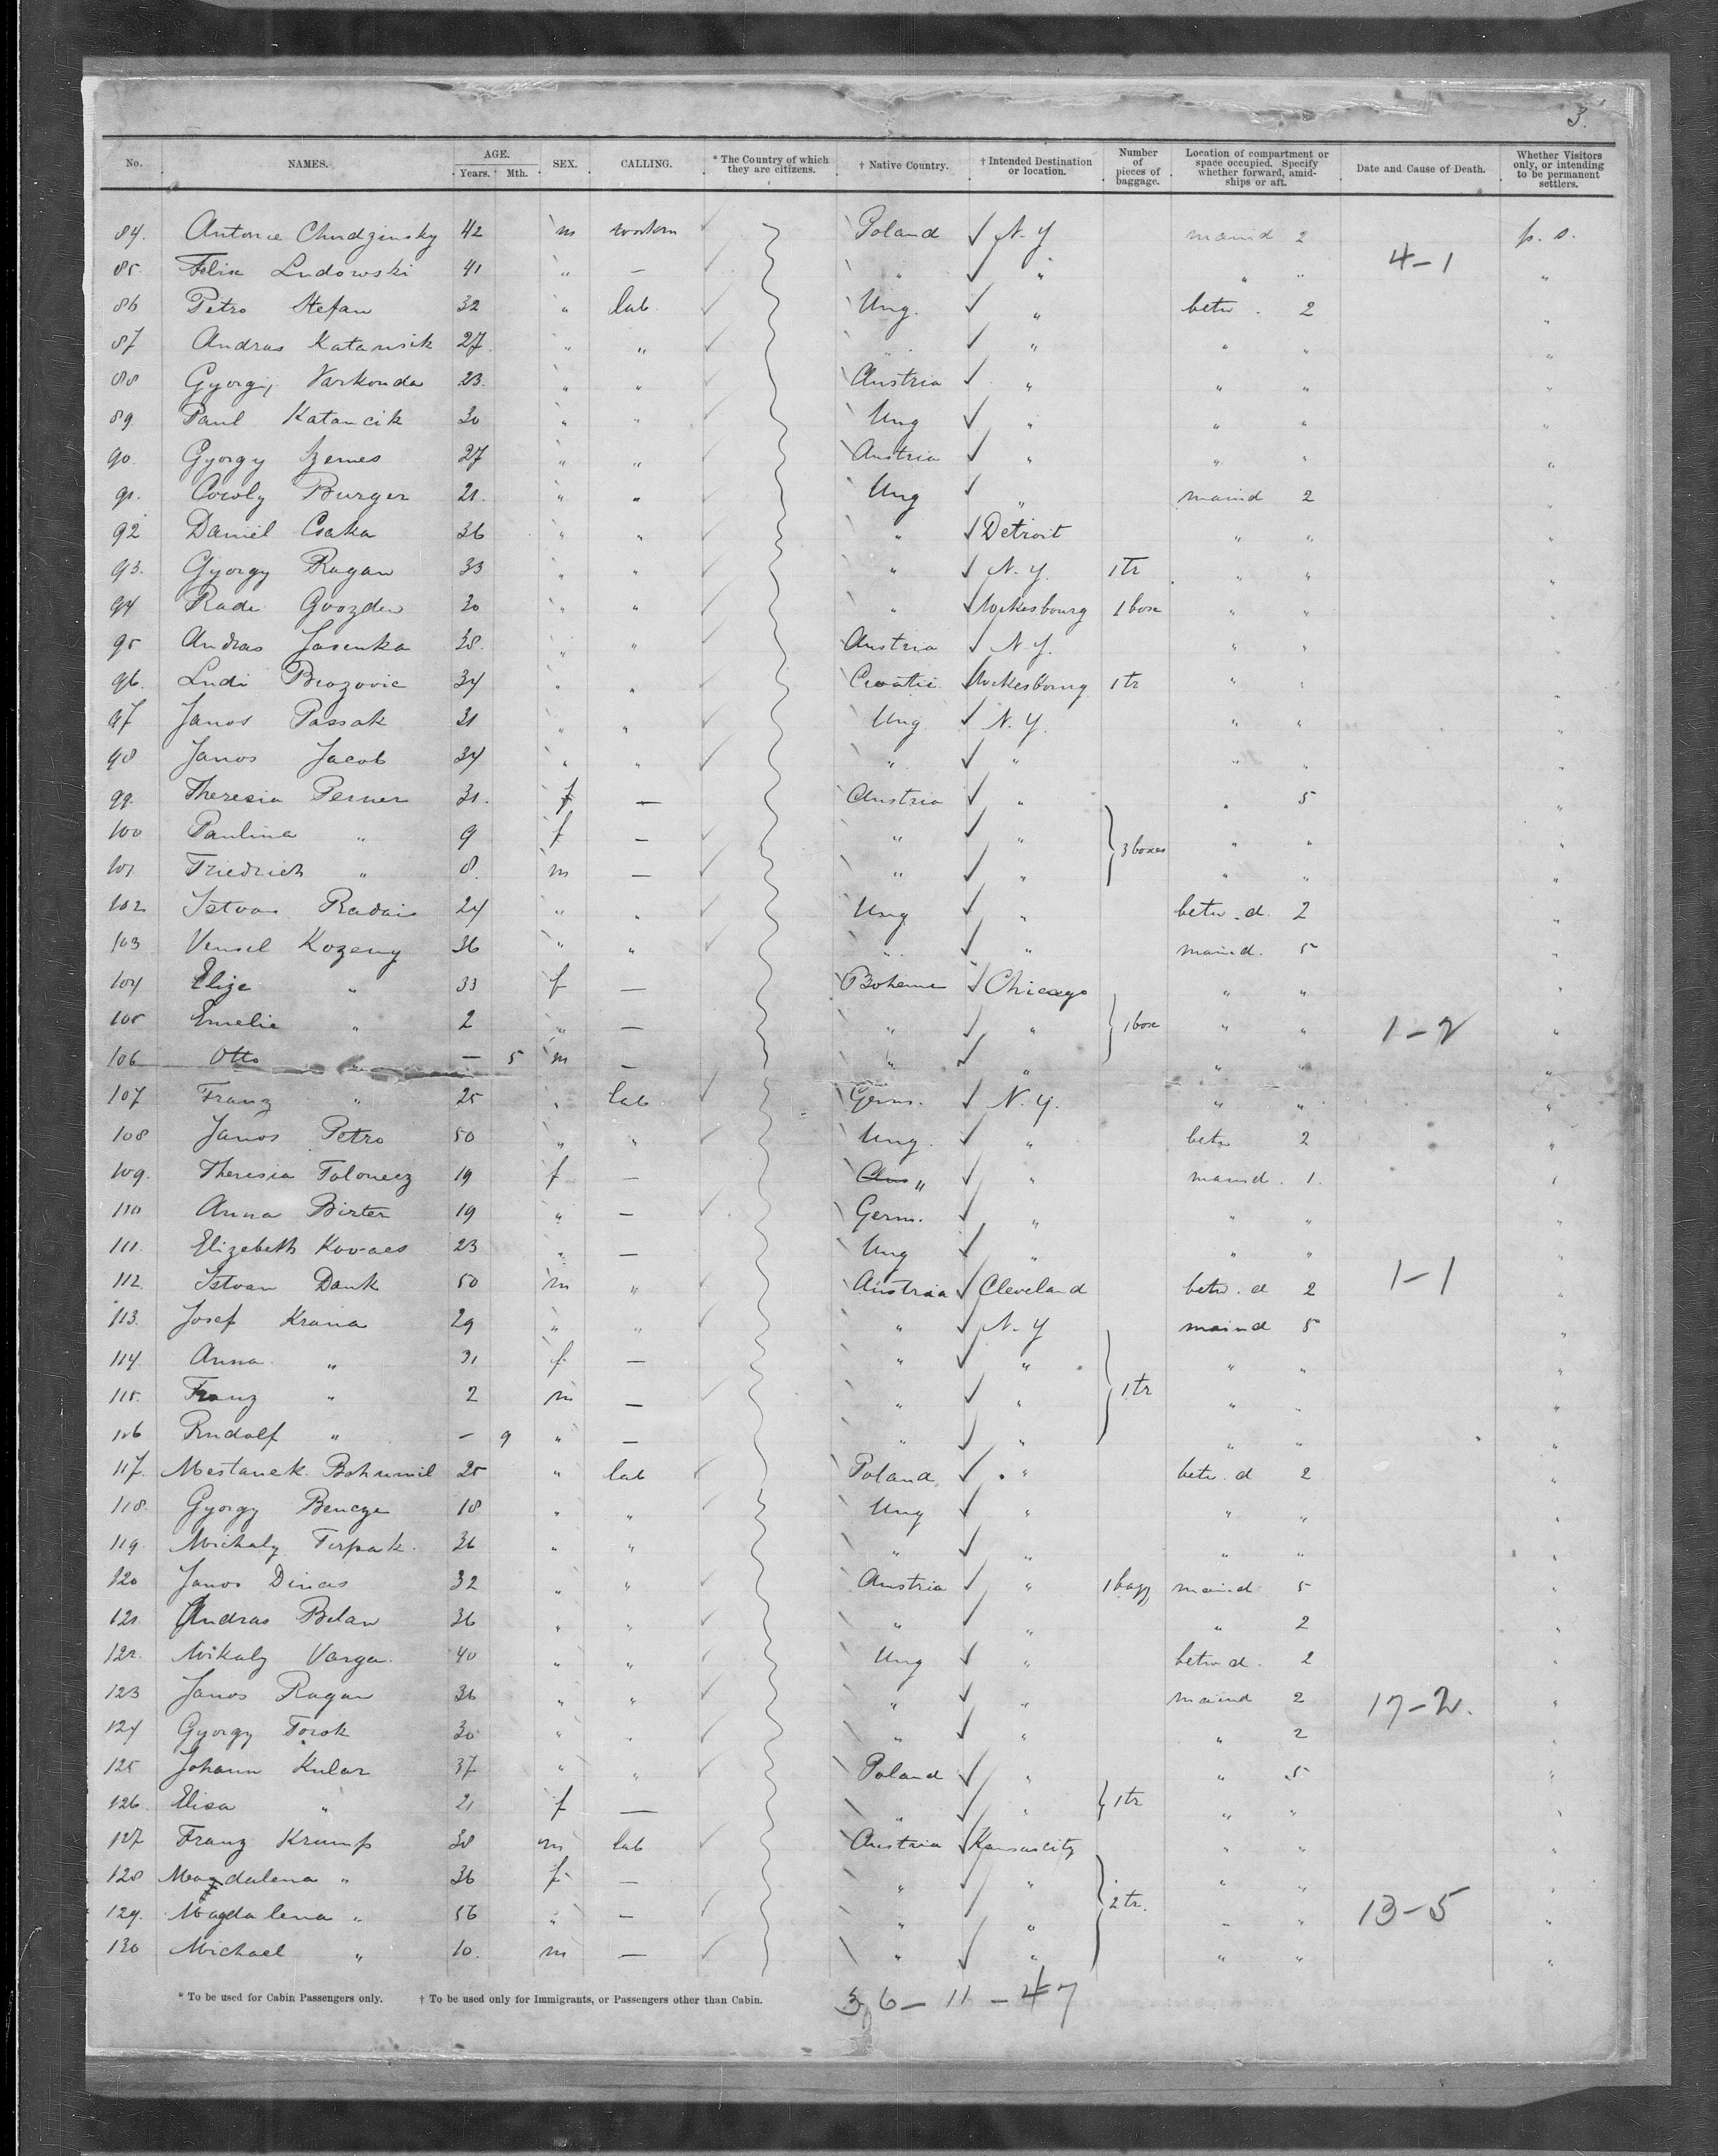 3.
No. NAMES. AGE. Years. Mth. SEX. CALLING. * The Country of which they are citizens. † Native Country. † Intended Destination or location. Number of pieces of baggage. Location of compartment or space occupied. Specify whether forward, amidships or aft. Date and Cause of Death. Whether Visitors only, or intending to be permanent settlers.
84. Antonie Chudzinsky 42 m Poland N.Y maind 2 p. s.
85. Felix Ludowski 41 " — " " " " 4-1 "
86 Petro Stefan 32 " lab. Ung. " betw. 2 "
87 Andras Katansik 27. " " " " " " "
88 Gyorgi Varkonda 23. " " Austria " " " "
89 Paul Katancik 30 " " Ung " " " "
90. Gyorgy Szemes 27 " " Austria " " " "
91. Burger 21. " " Ung " maind 2 "
92 Daniel Csaka 36 " " " Detroit " " "
93. Gyorgy Ragan 33 " " " N.Y. 1 tr " " "
94 Rade Gvozden 30 " " " 1 box " " "
95 Andras Jasenka 38. " " Austria N.Y. " " "
96. Ludi Brozovic 34 " " Croatie 1 tr " " "
97 Janos Passak 31 " " Ung N.Y. " " "
98 Janos Jacob 34 " " " " " " "
99. Theresia Perner 31. f — Austria " " 5 "
100 Paulina " 9 f — " " " " "
101 Friedrich " 8. m — " " 3 boxes " " "
102 Istvan Radais 24 " " Ung " betw. d. 2 "
103 Vensel Kozeny 36 " " " " maind. 5 "
104 Elize " 33 f — Boheme Chicago " " "
105 Emelie " 2 " — " " 1 box " " 1-2 "
106 Otto " — 5 m — " " " " "
107 Franz " 25 " lab Germ. N.Y. " " "
108 Janos Petro 50 " " Ung. " betw 2 "
109. Theresia Tolonecz 19 f — " " maind. 1. "
110 Anna Birter 19 " — Germ. " " " "
111. Elizebeth Kovacs 23 " — Ung " " " "
112. Istvan Dank 50 m " Austria Cleveland betw. d 2 1-1 "
113. Josef Krana 29 " " " N.Y maind 5 "
114. Anna " 31 f — " " " " "
115. Franz " 2 m — " " 1 tr " " "
116 Rudolf " — 9 " — " " " " "
117. Mestanek Bohumil 25 " lab Poland " betw. d 2 "
118. Gyorgy Bencze 18 " " Ung " " " "
119. Michaly Terpak 36 " " " " " " "
120 Janos Dinas 32 " " Austria " 1 bagg maind 5 "
121. Andras Belan 36 " " " " " 2 "
122. Mikaly Varga 40 " " Ung " betw d. 2 "
123 Janos Ragan 36 " " " " maind 2 17-2. "
124 Gyorgy Torok 30 " " " " " 2 "
125 Johann Kular 37 " " Poland " " 5 "
126. Elisa " 21 f — " " 1 tr " " "
127 Franz Krump 38 m lab Austria Kansas city " " "
128 Magdalena " 36 f — " " " " "
129. Magdalena " 56 " — " " 2 tr. " " 13-5 "
130 Michael " 10. m — " " " " "
* To be used for Cabin Passengers only. † To be used only for Immigrants, or Passengers other than Cabin.
36 — 11 — 47